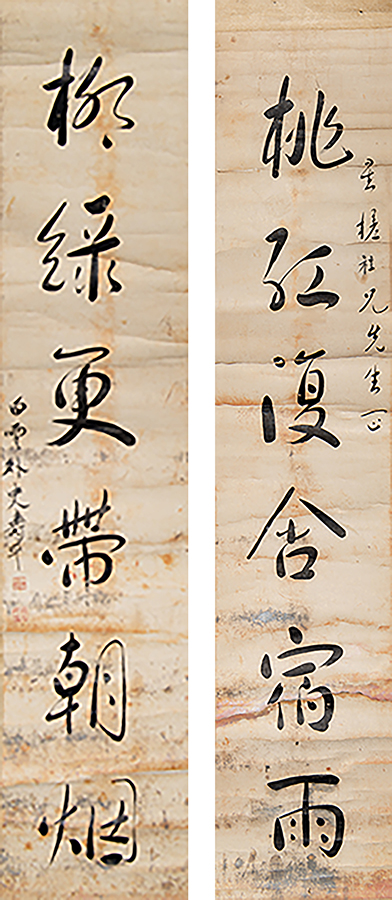 桃紅復含宿雨
星槎社兄先生正
柳綠更帶朝烟
白雲外史壽平